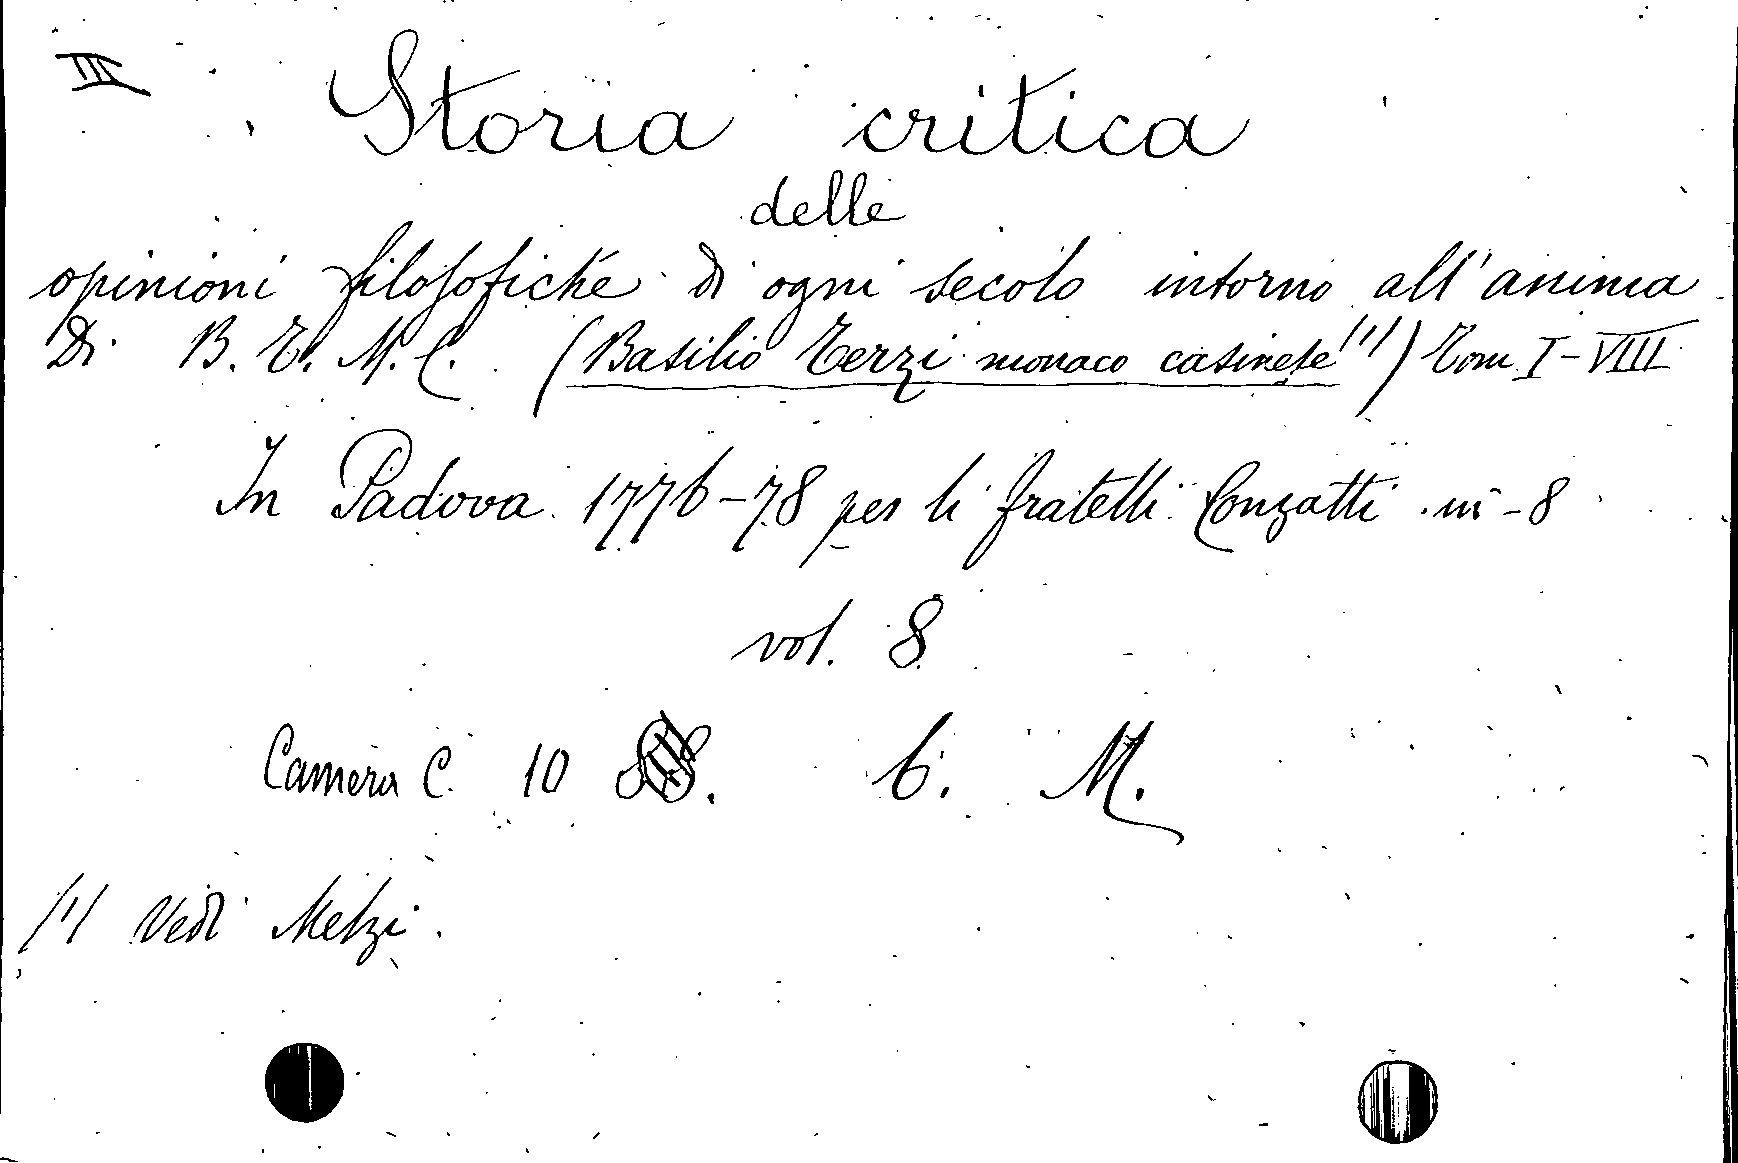 III Storia critica
delle
opinioni filosofiche di ogni secolo intorno all'anima
Di B. T. M. C. (Basilio Terzi monaco casinese (1)) Tom I-VIII
In Padova 1776-78 per li fratelli Conzatti in-8
vol. 8
Camera C. 10 6. M.
(1) Vedi Melzi.